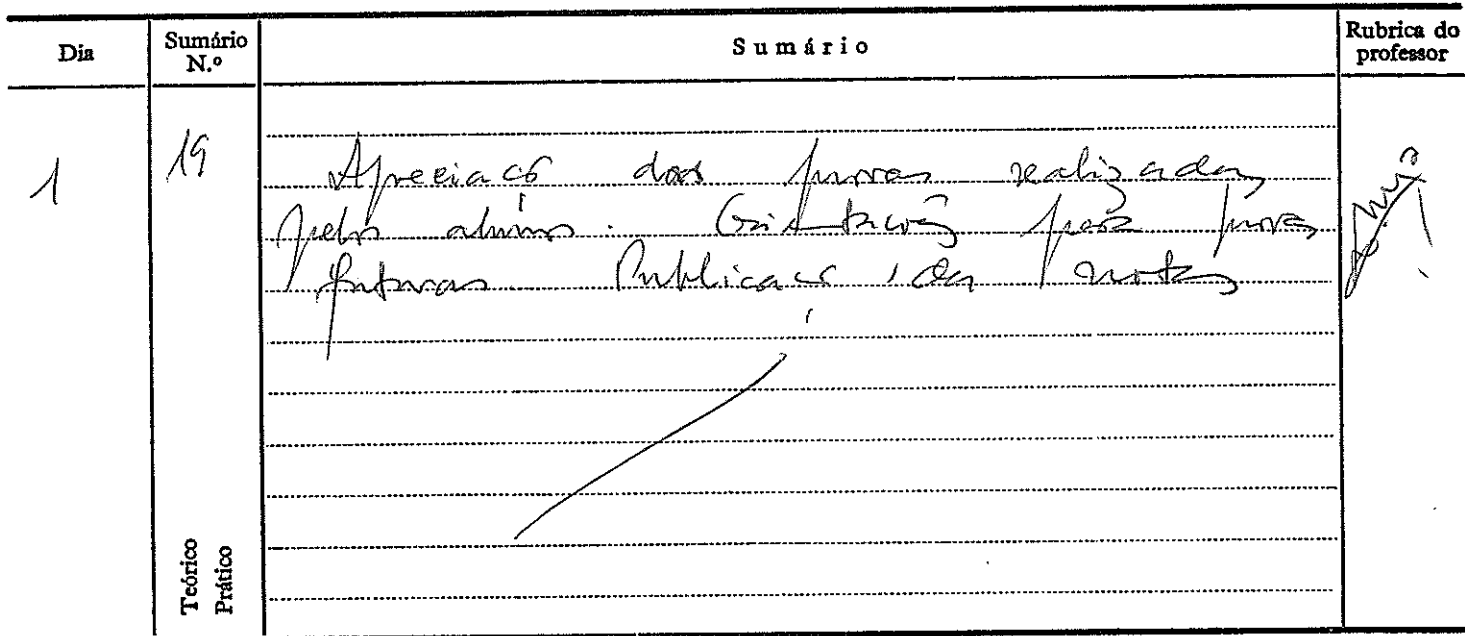 Dia
Sumário N.º
Sumário
Rubrica do professor
1
19
Apreciação das provas realizadas
pelos alunos. Orientações para provas
futuras. Publicação das notas
Teórico
Prático